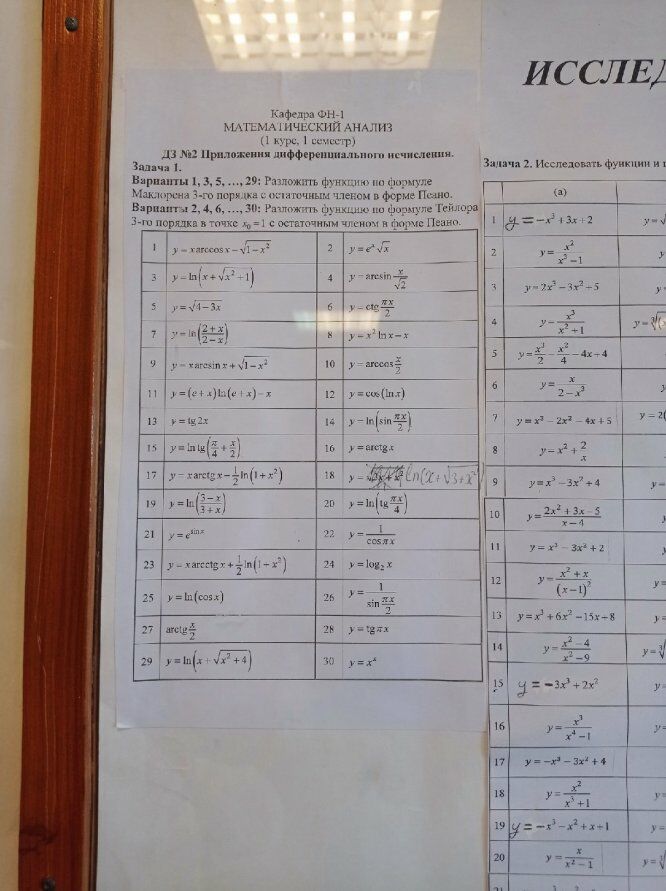 Кафедра ФН-1
МАТЕМАТИЧЕСКИЙ АНАЛИЗ
(1 курс, 1 семестр)
ДЗ №2 Приложения дифференциального исчисления.
Задача 1.
Варианты 1, 3, 5, …, 29: Разложить функцию по формуле
Маклорена 3-го порядка с остаточным членом в форме Пеано.
Варианты 2, 4, 6, …, 30: Разложить функцию по формуле Тейлора
3-го порядка в точке x₀=1 с остаточным членом в форме Пеано.
1 y = x arccos x − √(1−x²) 2 y = eˣ√x
3 y = ln(x + √(x²+1)) 4 y = arcsin x/√2
5 y = √(4−3x) 6 y = ctg πx/2
7 y = ln((2+x)/(2−x)) 8 y = x² ln x − x
9 y = x arcsin x + √(1−x²) 10 y = arccos x/2
11 y = (e+x)ln(e+x) − x 12 y = cos(ln x)
13 y = tg 2x 14 y = ln(sin πx/2)
15 y = ln tg(π/4 + x/2) 16 y = arctg x
17 y = x arctg x − 1/2 ln(1+x²) 18 y = ln(x+√3+x²)
19 y = ln((3−x)/(3+x)) 20 y = ln(tg πx/4)
21 y = e^(sin x) 22 y = 1/cos πx
23 y = x arcctg x + 1/2 ln(1+x²) 24 y = log₂ x
25 y = ln(cos x) 26 y = 1/sin πx/2
27 arctg x/2 28 y = tg πx
29 y = ln(x + √(x²+4)) 30 y = xˣ
ИССЛЕД
Задача 2. Исследовать функции и
(а)
1 y = −x³ + 3x + 2
2 y = x²/(x³−1)
3 y = 2x³ − 3x² + 5
4 y = x³/(x²+1)
5 y = x³/2 − x²/4 − 4x + 4
6 y = x/(2−x³)
7 y = x³ − 2x² − 4x + 5
8 y = x² + 2/x
9 y = x³ − 3x² + 4
10 y = (2x²+3x−5)/(x−4)
11 y = x³ − 3x² + 2
12 y = (x²+x)/(x−1)²
13 y = x³ + 6x² − 15x + 8
14 y = (x²−4)/(x²−9)
15 y = −3x³ + 2x²
16 y = x³/(x⁴−1)
17 y = −x³ − 3x² + 4
18 y = x²/(x³+1)
19 y = −x³ − x² + x + 1
20 y = x/(x²−1)